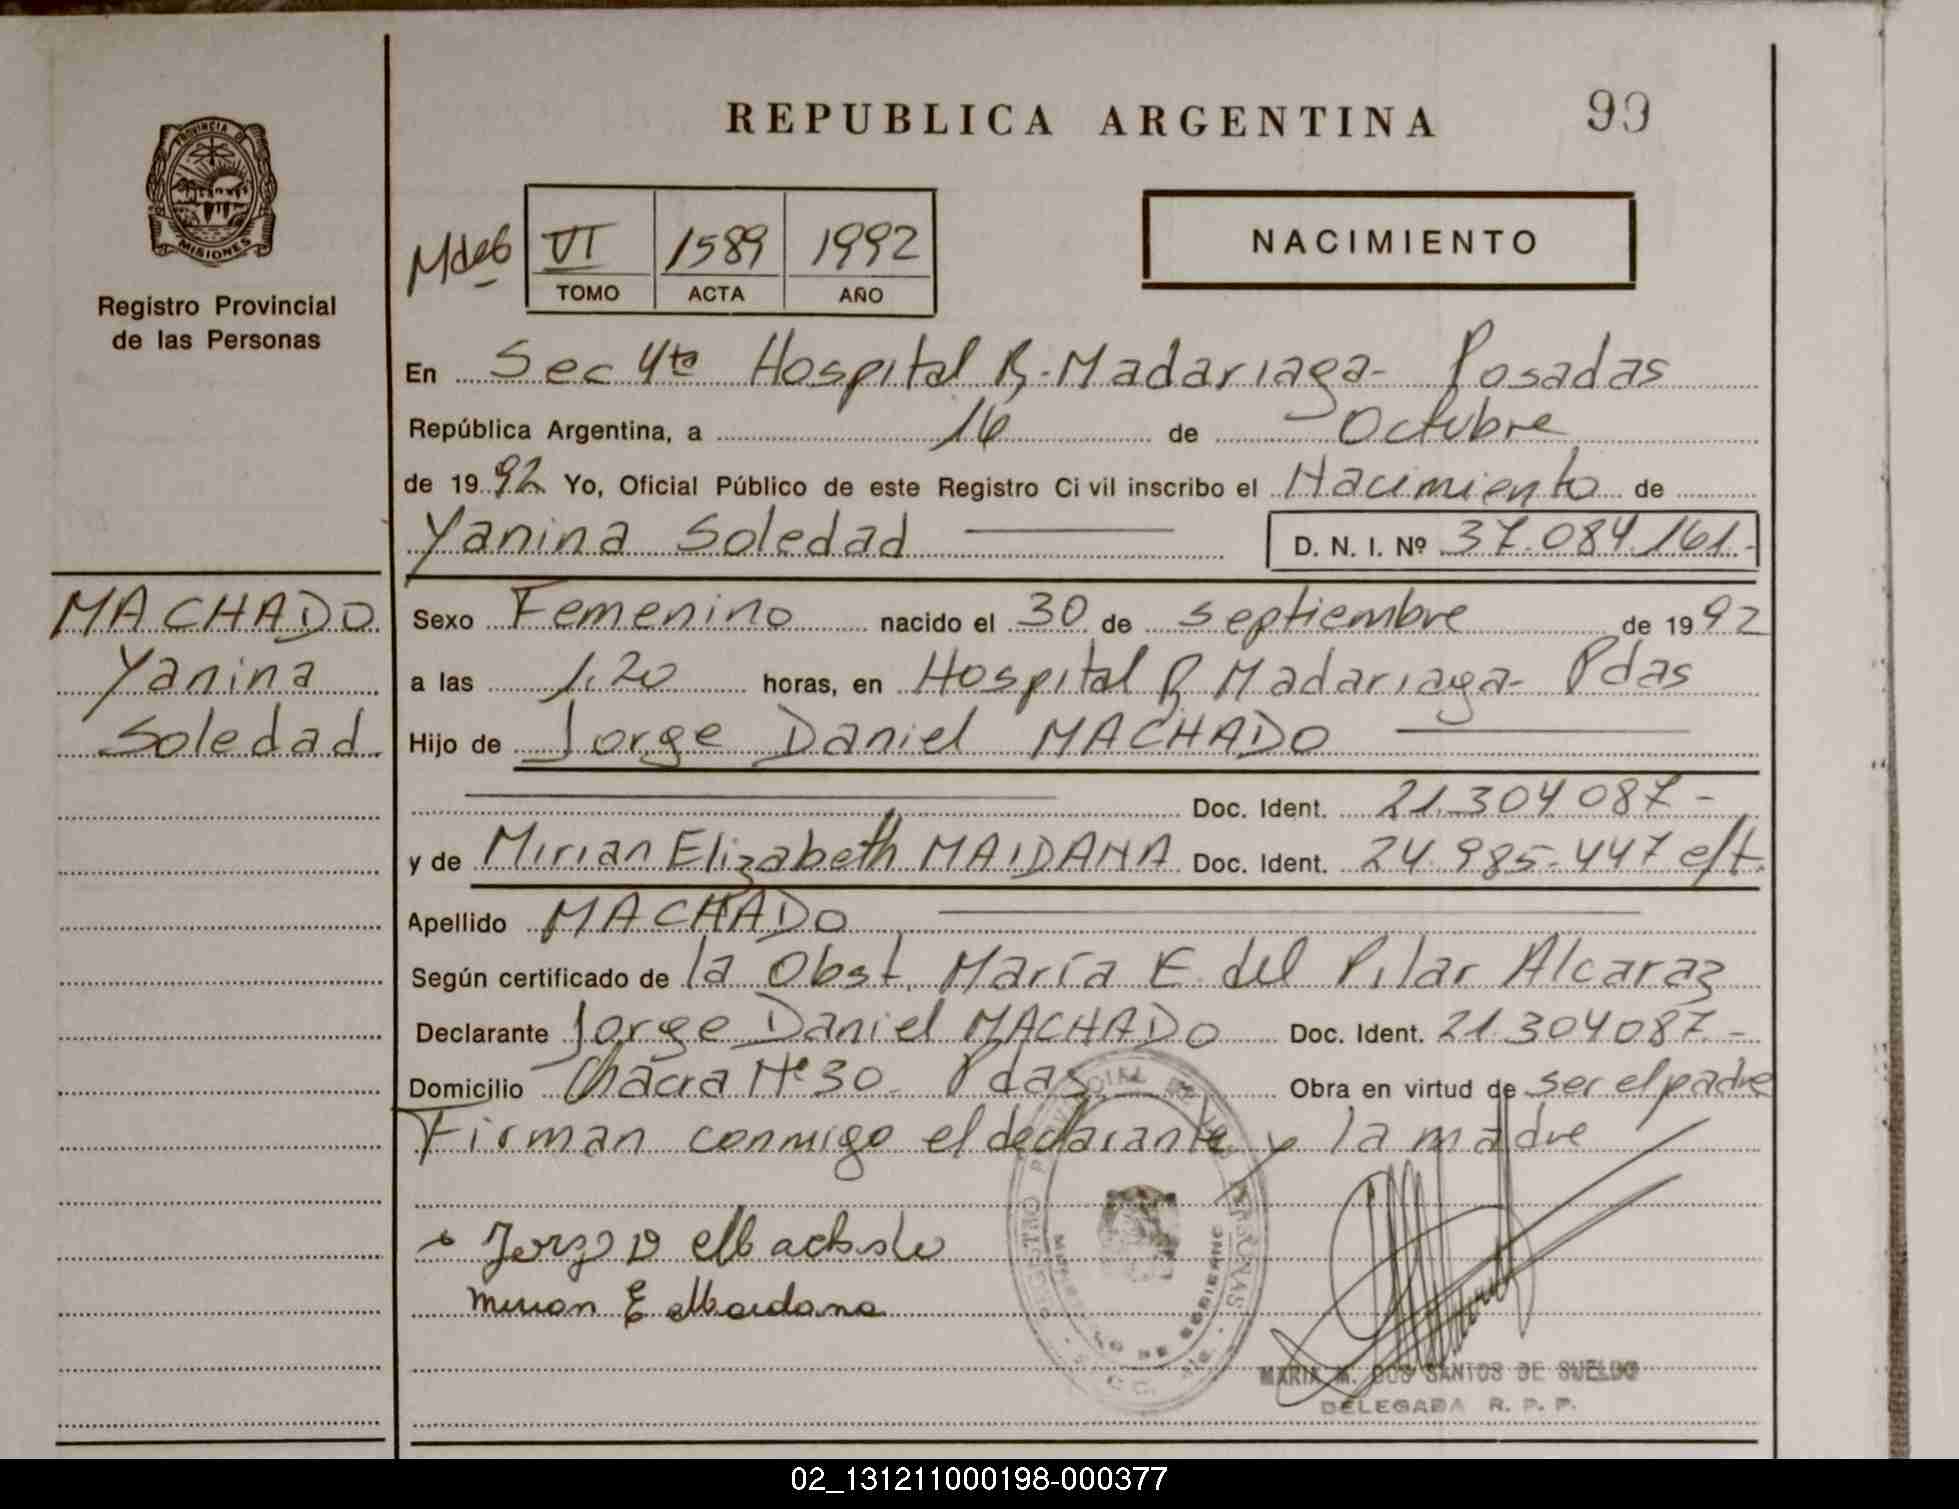 REPUBLICA ARGENTINA
99
PROVINCIA DE
MISIONES
Registro Provincial
de las Personas
VI 1589 1992
TOMO ACTA AÑO
NACIMIENTO
En Sec 4ta Hospital R. Madariaga- Posadas
República Argentina, a 16 de Octubre
de 1992 Yo, Oficial Público de este Registro Civil inscribo el Nacimiento de
Yanina Soledad D. N. I. Nº 37.084.161.-
MACHADO
Yanina
Soledad
Sexo Femenino nacido el 30 de septiembre de 1992
a las 1.20 horas, en Hospital R Madariaga- Pdas
Hijo de Jorge Daniel MACHADO
Doc. Ident. 21.304.087-
y de Mirian Elizabeth MAIDANA Doc. Ident. 24.985.447 e/t.
Apellido MACHADO
Según certificado de la Obst. María E. del Pilar Alcaraz
Declarante Jorge Daniel MACHADO Doc. Ident. 21.304.087.-
Domicilio Chacra Nº 30. Pdas. Obra en virtud de ser el padre
Firman conmigo el declarante y la madre
Mirian E Maidana
MARIA M. DOS SANTOS DE SUELDO
DELEGADA R. P. P.
02_131211000198-000377